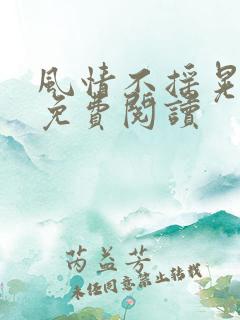 風情不搖晃
免費閱讀
芮益芳
未经同意禁止转载